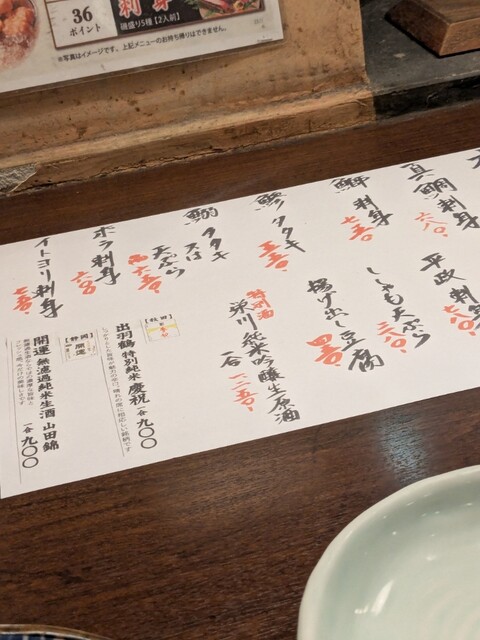 36
ポイント
刺身
磯盛り5種【2人前】
※写真はイメージです。上記メニューのお持ち帰りはできません。
真鯛刺身
六八〇
平政刺身
七六〇
鰤刺身
七五〇
ししゃも天ぷら
三八〇
鯵タタキ
五五〇
揚げ出し豆腐
四五〇
鰯タタキ
又は
天ぷら
栄川純米吟醸生原酒
一合
ボラ刺身
六八〇
【秋田】
出羽鶴 特別純米 慶祝 一合 九〇〇
イトヨリ刺身
七五〇
【静岡】
開運
開運 無濾過純米生酒 山田錦 一合 九〇〇